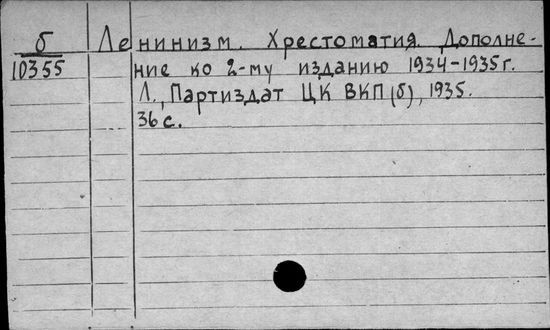 б Ленинизм. Хрестоматия. Дополне-
10355 ние ко 2-му изданию 1934-1935г.
Л., Партиздат ЦК ВКП(б), 1935.
36с.